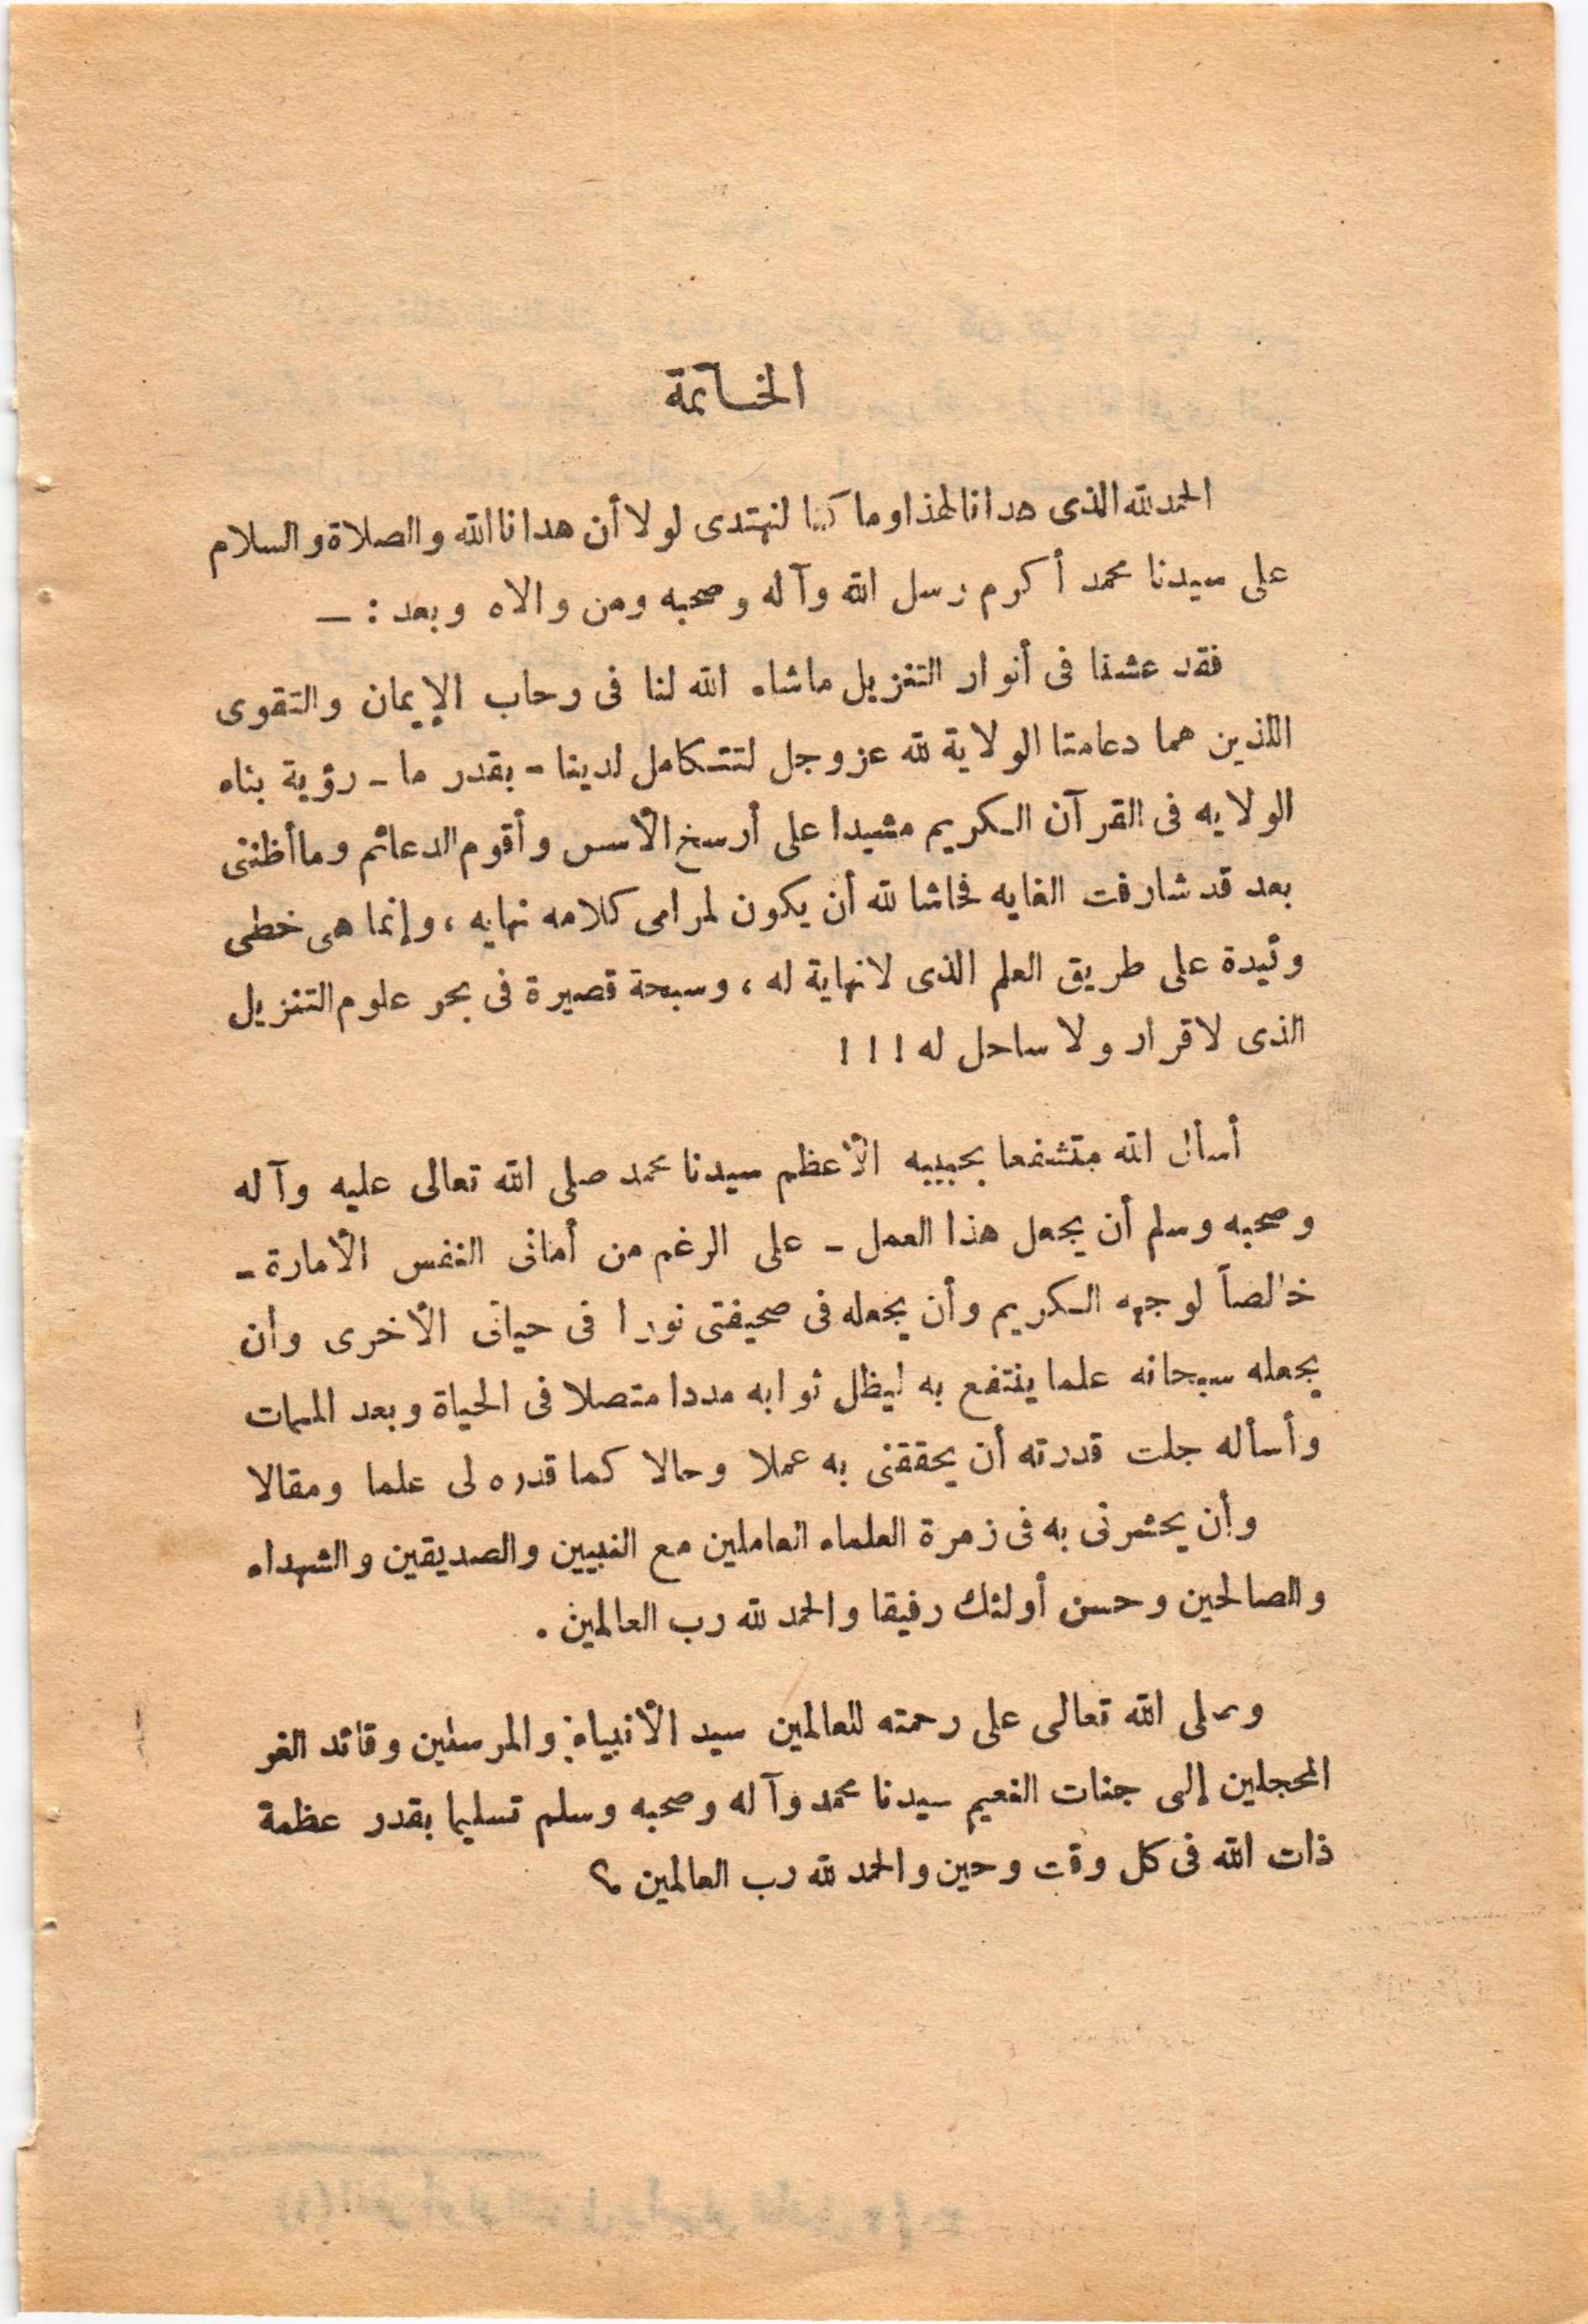 الخاتمة
الحمد لله الذى هدانا لهذا وما كنا لنهتدى لولا أن هدانا الله والصلاة والسلام
على سيدنا محمد أكرم رسل الله وآله وصحبه ومن والاه وبعد : —
فقد عشنا فى أنوار التنزيل ماشاء الله لنا فى رحاب الإيمان والتقوى
اللذين هما دعامتا الولاية لله عز وجل لتتكامل لدينا - بقدر ما - رؤية بناء
الولايه فى القرآن الكريم مشيدا على أرسخ الأسس وأقوم الدعائم وما أظننى
بعد قد شارفت الغايه فحاشا لله أن يكون لمرامى كلامه نهايه ، وإنما هى خطى
وئيدة على طريق العلم الذى لانهاية له ، وسبحة قصيرة فى بحر علوم التنزيل
الذى لا قرار ولا ساحل له ! ! !
أسأل الله متشفعا بحبيبه الأعظم سيدنا محمد صلى الله تعالى عليه وآله
وصحبه وسلم أن يجعل هذا العمل - على الرغم من أمانى النفس الأمارة -
خالصاً لوجهه الكريم وأن يجعله فى صحيفتى نورا فى حياتى الأخرى وأن
يجعله سبحانه علما ينتفع به ليظل ثوابه مددا متصلا فى الحياة وبعد الممات
وأسأله جلت قدرته أن يحققنى به عملا وحالا كما قدره لى علما ومقالا
وأن يحشرنى به فى زمرة العلماء العاملين مع النبيين والصديقين والشهداء
والصالحين وحسن أولئك رفيقا والحمد لله رب العالمين .
وصلى الله تعالى على رحمته للعالمين سيد الأنبياء والمرسلين وقائد الغر
المحجلين إلى جنات النعيم سيدنا محمد وآله وصحبه وسلم تسليما بقدر عظمة
ذات الله فى كل وقت وحين والحمد لله رب العالمين ؟